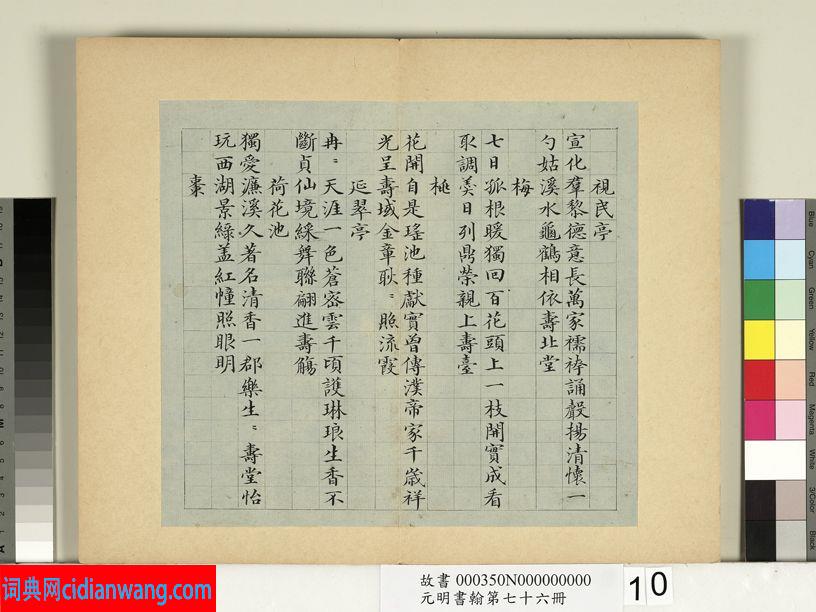 視民亭
宣化羣黎德意長萬家襦袴誦聲揚清懷一
勺姑溪水龜鶴相依壽北堂
梅
七日孤根暖獨回百花頭上一枝開實成看
取調羹日列鼎榮親上壽臺
桃
花開自是瑤池種獻實曾傳漢帝家千歲祥
光呈壽域金章耿〻照流霞
延翠亭
冉〻天涯一色蒼密雲千頃護琳琅生香不
斷貞仙境綵舞聯翩進壽觴
荷花池
獨愛濂溪久著名清香一郡樂生〻壽堂怡
玩西湖景綠蓋紅幢照眼明
棗
Blue
Cyan
Green
Yellow
Red
Magenta
White
3/Color
Black
词典网cidianwang.com
故書 000350N000000000
元明書翰第七十六冊
10